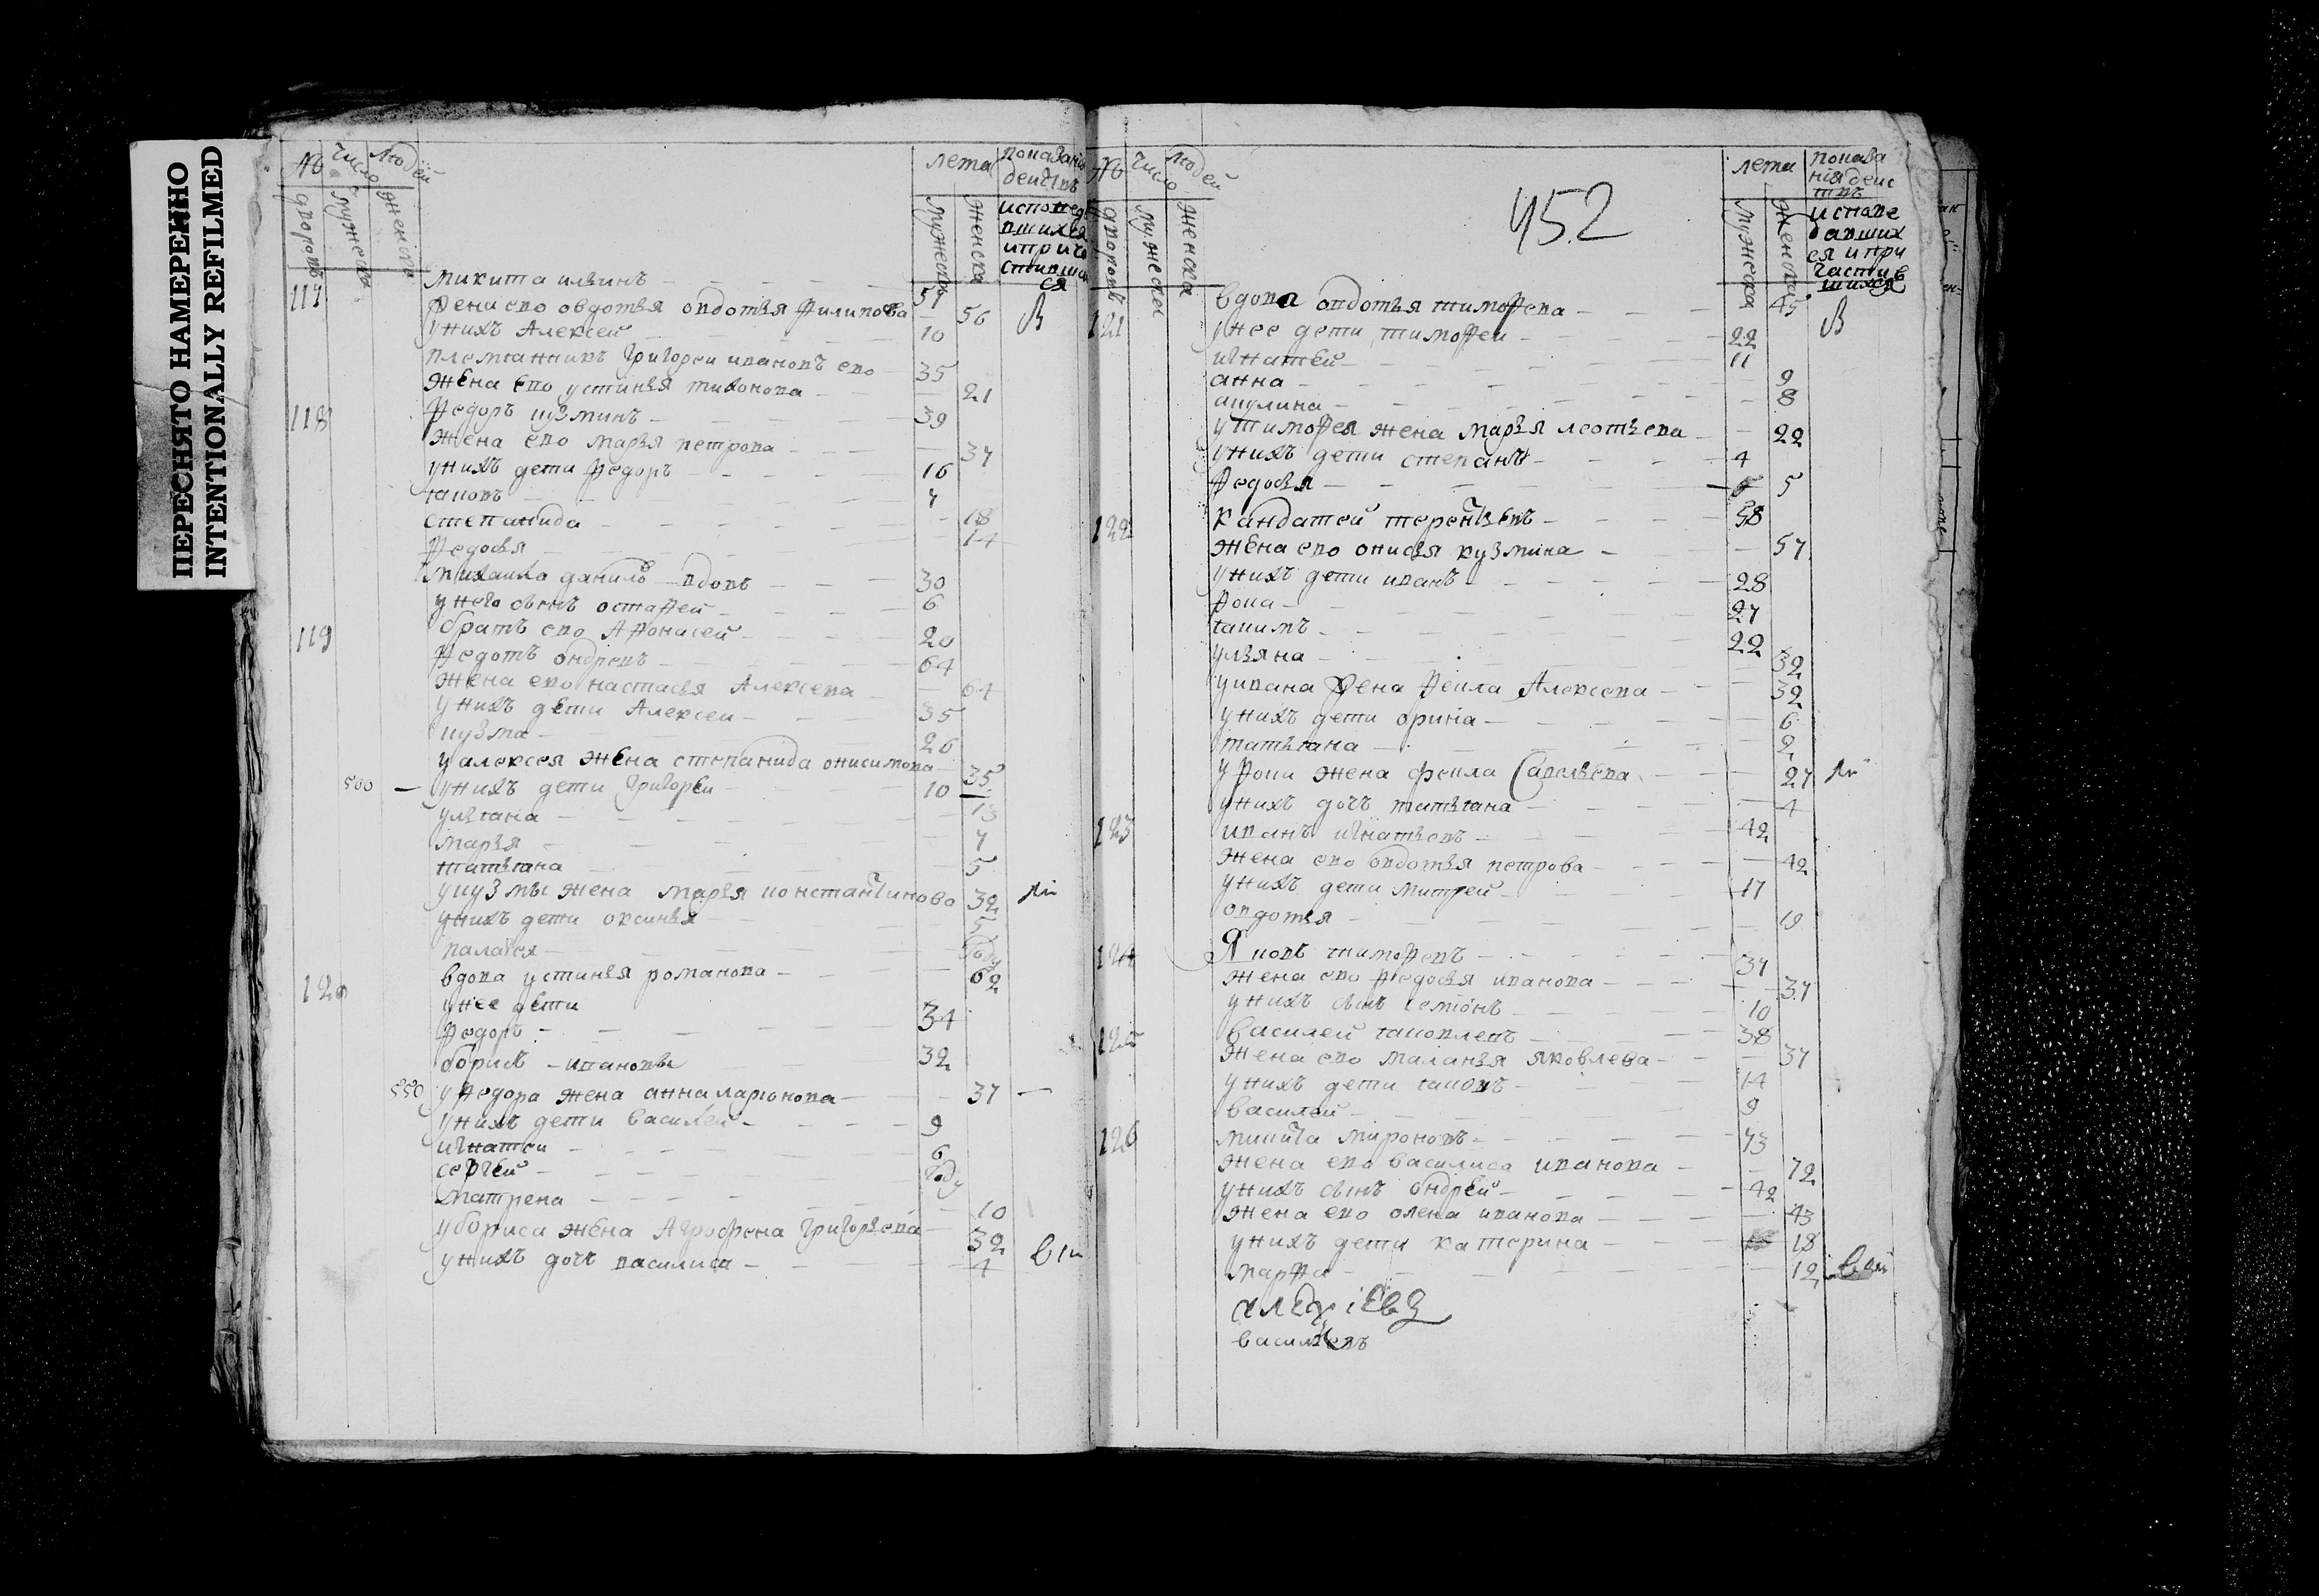 ПЕРЕСНЯТО НАМЕРЕННО
INTENTIONALLY REFILMED
№ число людей лета показания действъ
дворовъ мужеска женска мужеска женска исповедавшихся и причастившихся
микита ильинъ 51
117 жена ево овдотья филипова 56 В
у нихъ Алексей 10
племянникъ григореи ивановъ ево 35
жена ево устинья тихонова 21
118 федоръ кузминъ 39
жена ево марья петрова 37
у нихъ дети федоръ 16
яковъ 7
степанида 18
федосья 14
михаила данилъ вдовъ 30
у него сынъ остафей 6
119 братъ ево Афонасей 20
федотъ ондревъ 64
жена ево настасья Алексева 64
у нихъ дети Алексеи 35
кузма 26
у алексея жена степанида онисимова 35
500 у нихъ дети григореи 10
ульяна 13
марья 7
татьяна 5
у кузмы жена марья константинова 32
у нихъ дети оксинья 5
палагея году
120 вдова устинья романова 62
у нее дети
федоръ 34
борисъ ивановы 32
550 у федора жена анна ларионова 37
у нихъ дети василей 9
игнатеи 6
сергей году
матрена 10
у бориса жена Агрофена григорьева 32
у нихъ дочь василиса 4
452
№ число людей лета показания действъ
дворовъ мужеска женска мужеска женска исповедавшихся и причастившихся
вдова овдотья тимофева 45
121 у нее дети тимофеи 22 В
игнатей 11
анна 9
акулина 8
у тимофея жена марья леотьева 22
у нихъ дети степанъ 4
федосья 5
122 кандатей терентьевъ 58
жена ево онисья кузмина 57
у нихъ дети иванъ 28
фока 27
якимъ 22
ульяна 32
у ивана жена фекла Алексева 32
у нихъ дети орина 6
татьяна 2
у фоки жена фекла Савельева 27
у нихъ дочь татьяна 4
123 иванъ игнатьевъ 42
жена ево овдотья петрова 42
у нихъ дети митрей 17
овдотья 19
124 Яковъ тимофевъ 37
жена ево федосья иванова 37
у нихъ сынъ семионъ 10
125 василей яковлевъ 38
жена ево маланья яковлева 37
у нихъ дети яковъ 14
василей 9
126 микита мироновъ 73
жена ево василиса иванова 72
у нихъ сынъ ондрей 42
жена ево олена иванова 43
у нихъ дети катерина 18
марфа 12
васильевъ